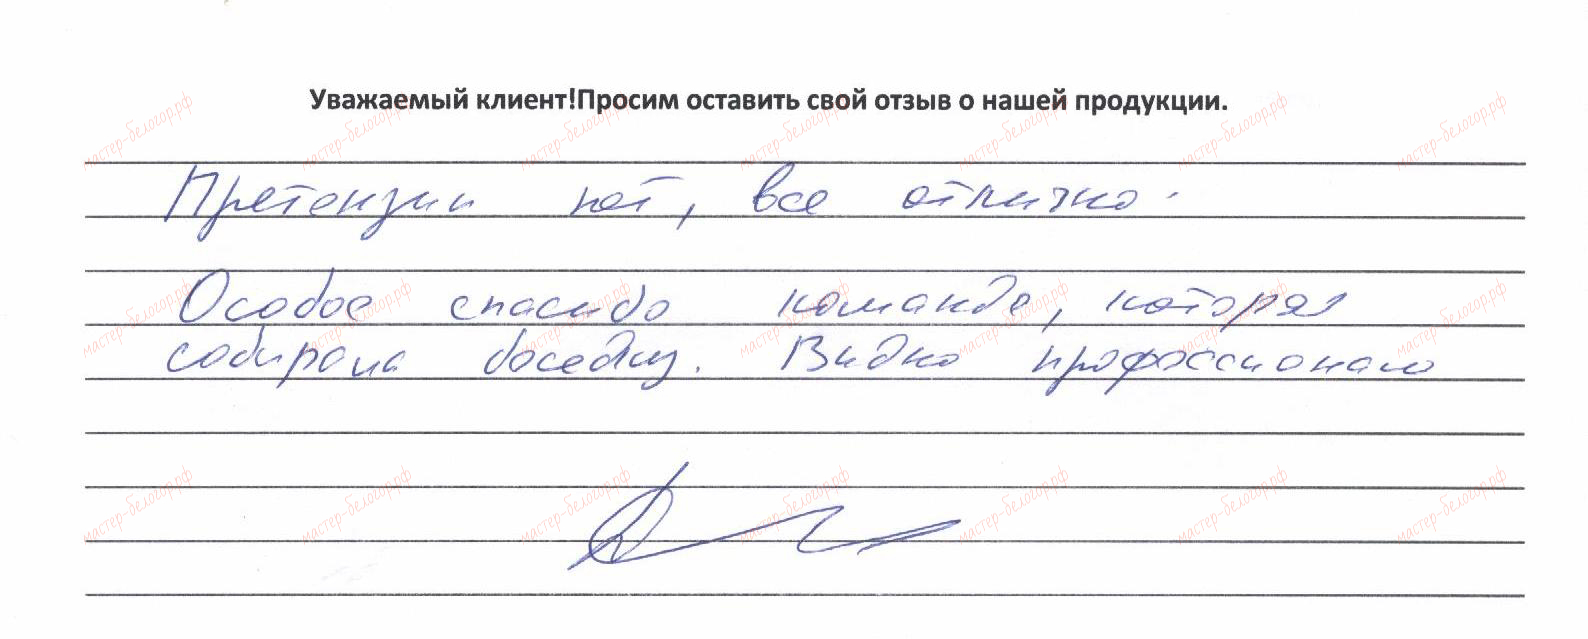 Уважаемый клиент!Просим оставить свой отзыв о нашей продукции.
Претензии нет, все отлично.
Особое спасибо команде, которая
собирала беседку. Видно профессионалов
мастер-белогор.рф